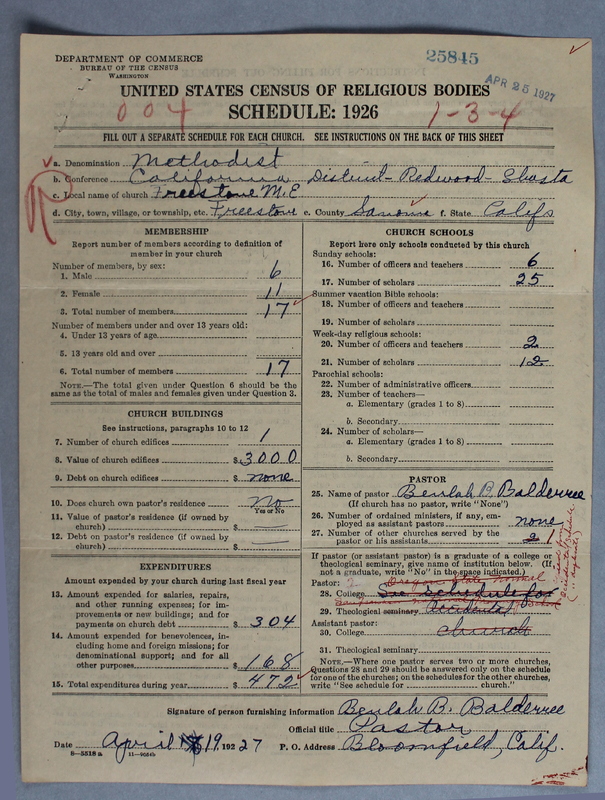 DEPARTMENT OF COMMERCE
BUREAU OF THE CENSUS
WASHINGTON
25845
APR 25 1927
UNITED STATES CENSUS OF RELIGIOUS BODIES
SCHEDULE: 1926
004
1-3-4
FILL OUT A SEPARATE SCHEDULE FOR EACH CHURCH. SEE INSTRUCTIONS ON THE BACK OF THIS SHEET
a. Denomination Methodist
b. Conference California District- Redwood- Shasta
c. Local name of church Freestone M.E
d. City, town, village, or township, etc. Freestone e. County Sanoma f. State Califs
MEMBERSHIP
Report number of members according to definition of
member in your church
Number of members, by sex:
1. Male 6
2. Female 11
3. Total number of members 17
Number of members under and over 13 years old:
4. Under 13 years of age
5. 13 years old and over
6. Total number of members 17
NOTE.—The total given under Question 6 should be the
same as the total of males and females given under Question 3.
CHURCH BUILDINGS
See instructions, paragraphs 10 to 12
7. Number of church edifices 1
8. Value of church edifices $ 3000
9. Debt on church edifices $ none
10. Does church own pastor's residence No
Yes or No
11. Value of pastor's residence (if owned by
church) $ —
12. Debt on pastor's residence (if owned by
church) $ —
EXPENDITURES
Amount expended by your church during last fiscal year
13. Amount expended for salaries, repairs,
and other running expenses; for im-
provements or new buildings; and for
payments on church debt $ 304
14. Amount expended for benevolences, in-
cluding home and foreign missions; for
denominational support; and for all
other purposes $ 168
15. Total expenditures during year $ 472
CHURCH SCHOOLS
Report here only schools conducted by this church
Sunday schools:
16. Number of officers and teachers 6
17. Number of scholars 25
Summer vacation Bible schools:
18. Number of officers and teachers
19. Number of scholars
Week-day religious schools:
20. Number of officers and teachers 2
21. Number of scholars 12
Parochial schools:
22. Number of administrative officers
23. Number of teachers—
a. Elementary (grades 1 to 8)
b. Secondary
24. Number of scholars—
a. Elementary (grades 1 to 8)
b. Secondary
PASTOR
25. Name of pastor Beulah B. Balderree
(If church has no pastor, write "None")
26. Number of ordained ministers, if any, em-
ployed as assistant pastors none
27. Number of other churches served by the
pastor or his assistants 2
If pastor (or assistant pastor) is a graduate of a college or
theological seminary, give name of institution below. (If
not a graduate, write "No" in the space indicated.)
Pastor: Oregon State Normal
28. College See Schedule for
29. Theological seminary Accidental
Assistant pastor:
30. College church
31. Theological seminary
NOTE.—Where one pastor serves two or more churches,
Questions 28 and 29 should be answered only on the schedule
for one of the churches; on the schedules for the other churches,
write "See schedule for church."
Signature of person furnishing information Beulah B. Balderree
Official title Pastor
Date April 19, 1927 P. O. Address Bloomfield, Calif.
8—5518 a